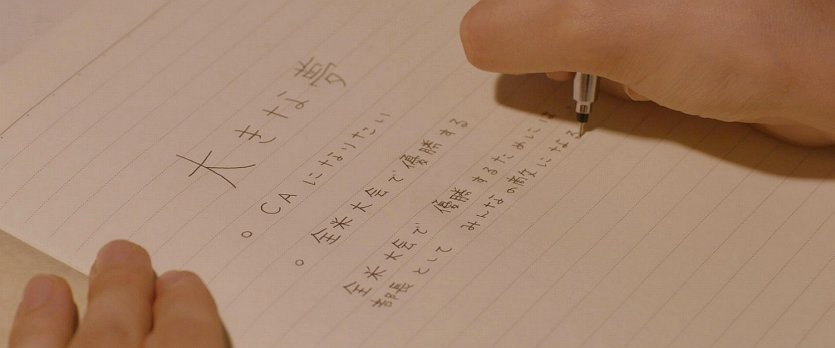 大きな夢
○ CAになりたい
○ 全米大会で優勝する
全米大会で 優勝するためには
部長として みんなの敵になる